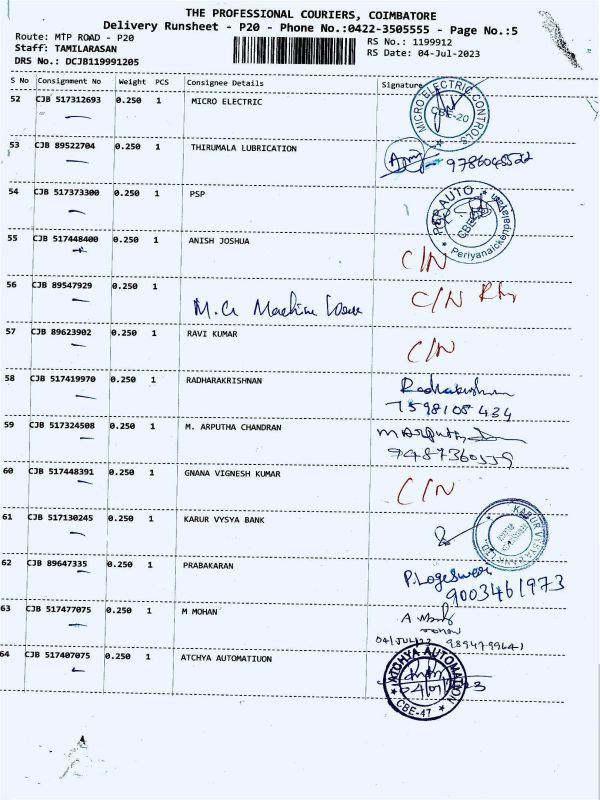 THE PROFESSIONAL COURIERS, COIMBATORE
Delivery Runsheet - P20 - Phone No.:0422-3505555 - Page No.:5
Route: MTP ROAD - P20 RS No.: 1199912
Staff: TAMILARASAN RS Date: 04-Jul-2023
DRS No.: DCJB119991205
S No Consignment No Weight PCS Consignee Details Signature
52 CJB 517312693 0.250 1 MICRO ELECTRIC
MICRO ELECTRIC CONTROLS CBE-20
53 CJB 89522704 0.250 1 THIRUMALA LUBRICATION
54 CJB 517373300 0.250 1 PSP
PSP AUTO Periyanaickenpalayam
55 CJB 517448400 0.250 1 ANISH JOSHUA C/N
56 CJB 89547929 0.250 1 C/N
57 CJB 89623902 0.250 1 RAVI KUMAR C/N
58 CJB 517419970 0.250 1 RADHARAKRISHNAN Radhakrishnan
7598108434
59 CJB 517324508 0.250 1 M. ARPUTHA CHANDRAN
60 CJB 517448391 0.250 1 GNANA VIGNESH KUMAR C/N
61 CJB 517130245 0.250 1 KARUR VYSYA BANK
KARUR VYSYA BANK LTD.
62 CJB 89647335 0.250 1 PRABAKARAN P. Logeswari
9003461973
63 CJB 517477075 0.250 1 M MOHAN
64 CJB 517407075 0.250 1 ATCHYA AUTOMATIUON
ATCHYA AUTOMATION CBE-47